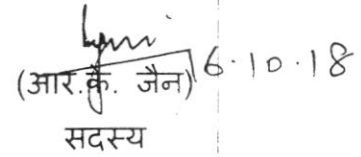 (आर.के. जैन) 6.10.18
सदस्य